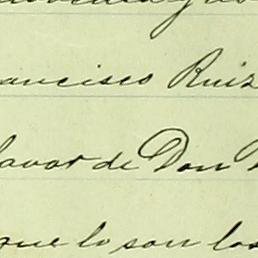 ancisco Ruiz
favor de Don
que lo son los